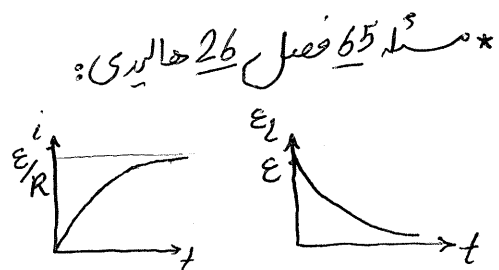 * مسئله 65 فصل 26 هالیدی:
i
ε/R
t
ε_L
ε
t